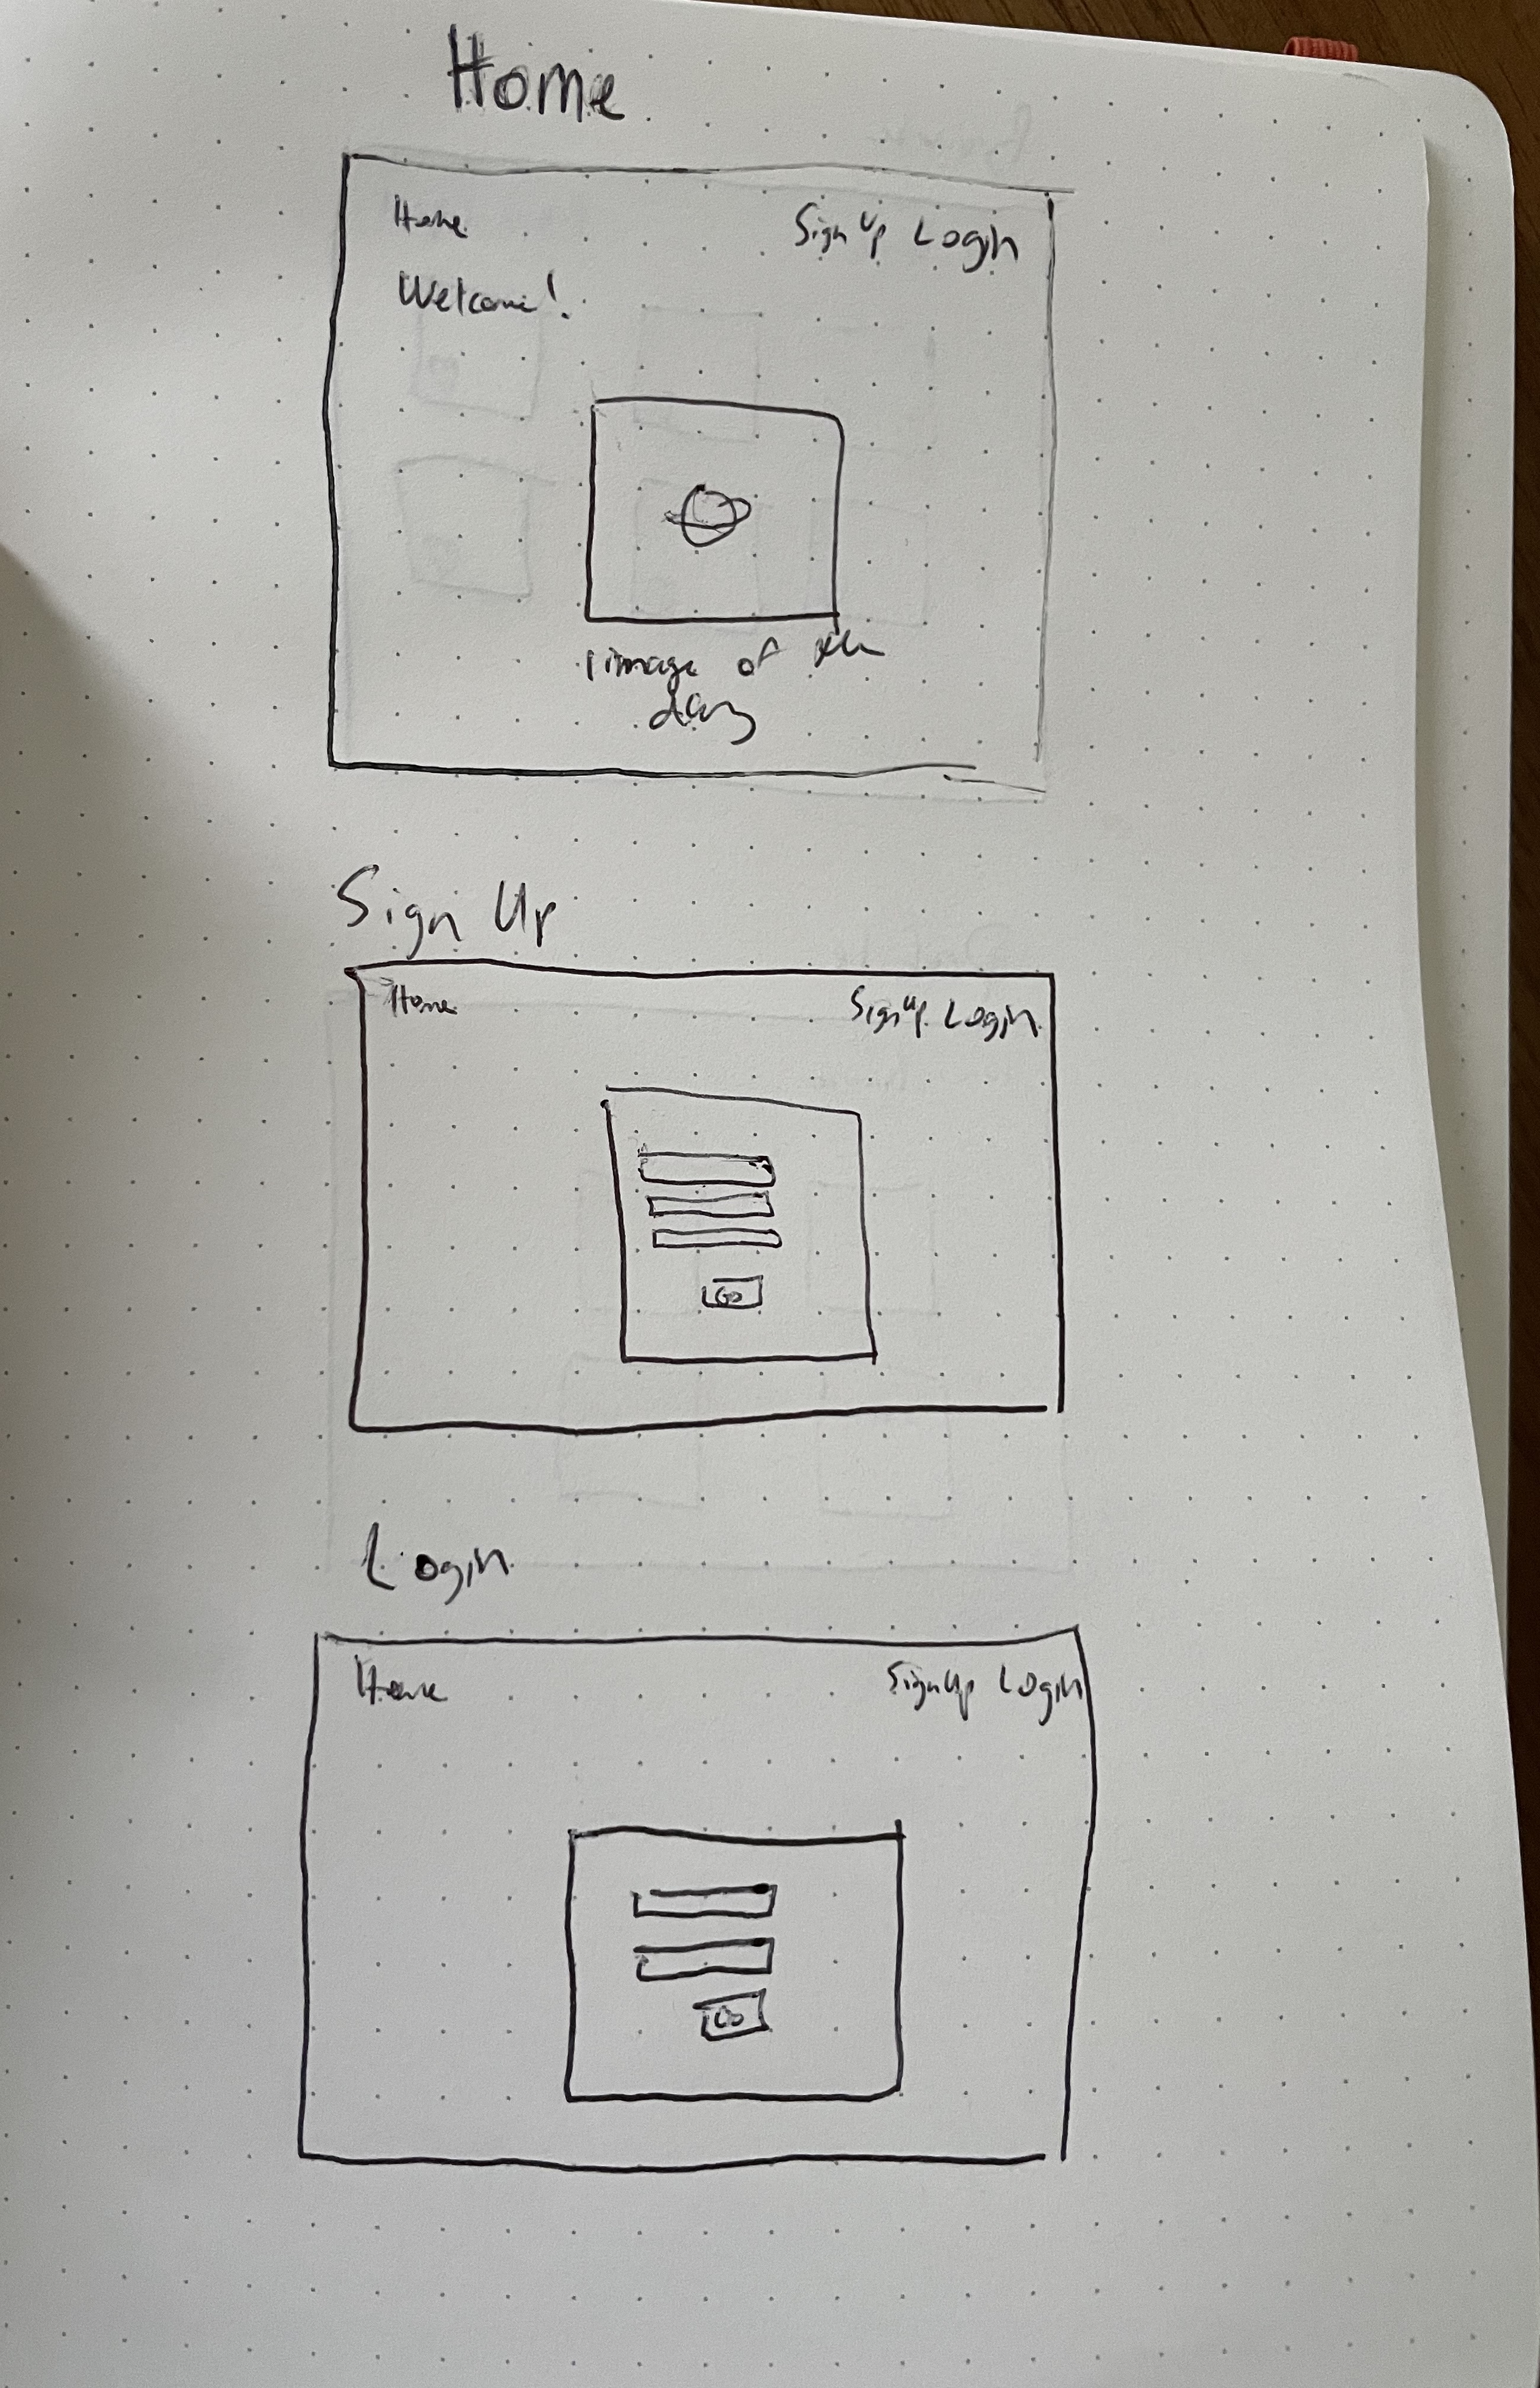 Home
Home Sign Up Login
Welcome!
image of the
day
Sign Up
Home Sign Up Login
Go
Login
Home Sign Up Login
Go